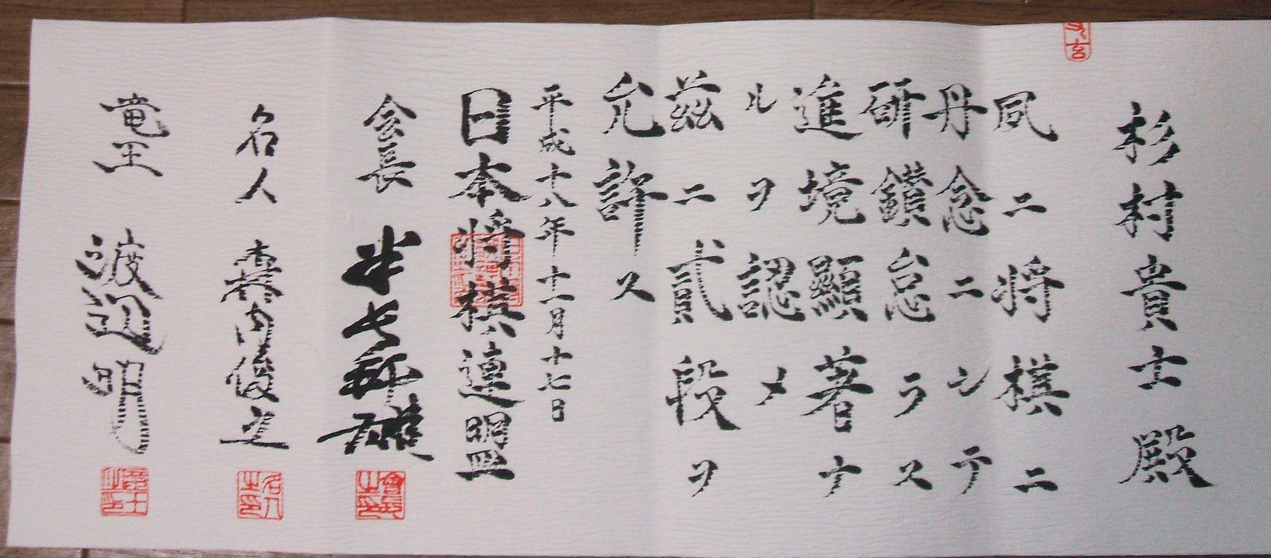 杉村貴士殿
夙ニ将棋ニ
丹念ニシテ
研鑽怠ラス
進境顯著ナ
ルヲ認メ
茲ニ貳段ヲ
允許ス
平成十八年十一月十七日
日本将棋連盟
会長 米長邦雄
名人 森内俊之
竜王 渡辺明